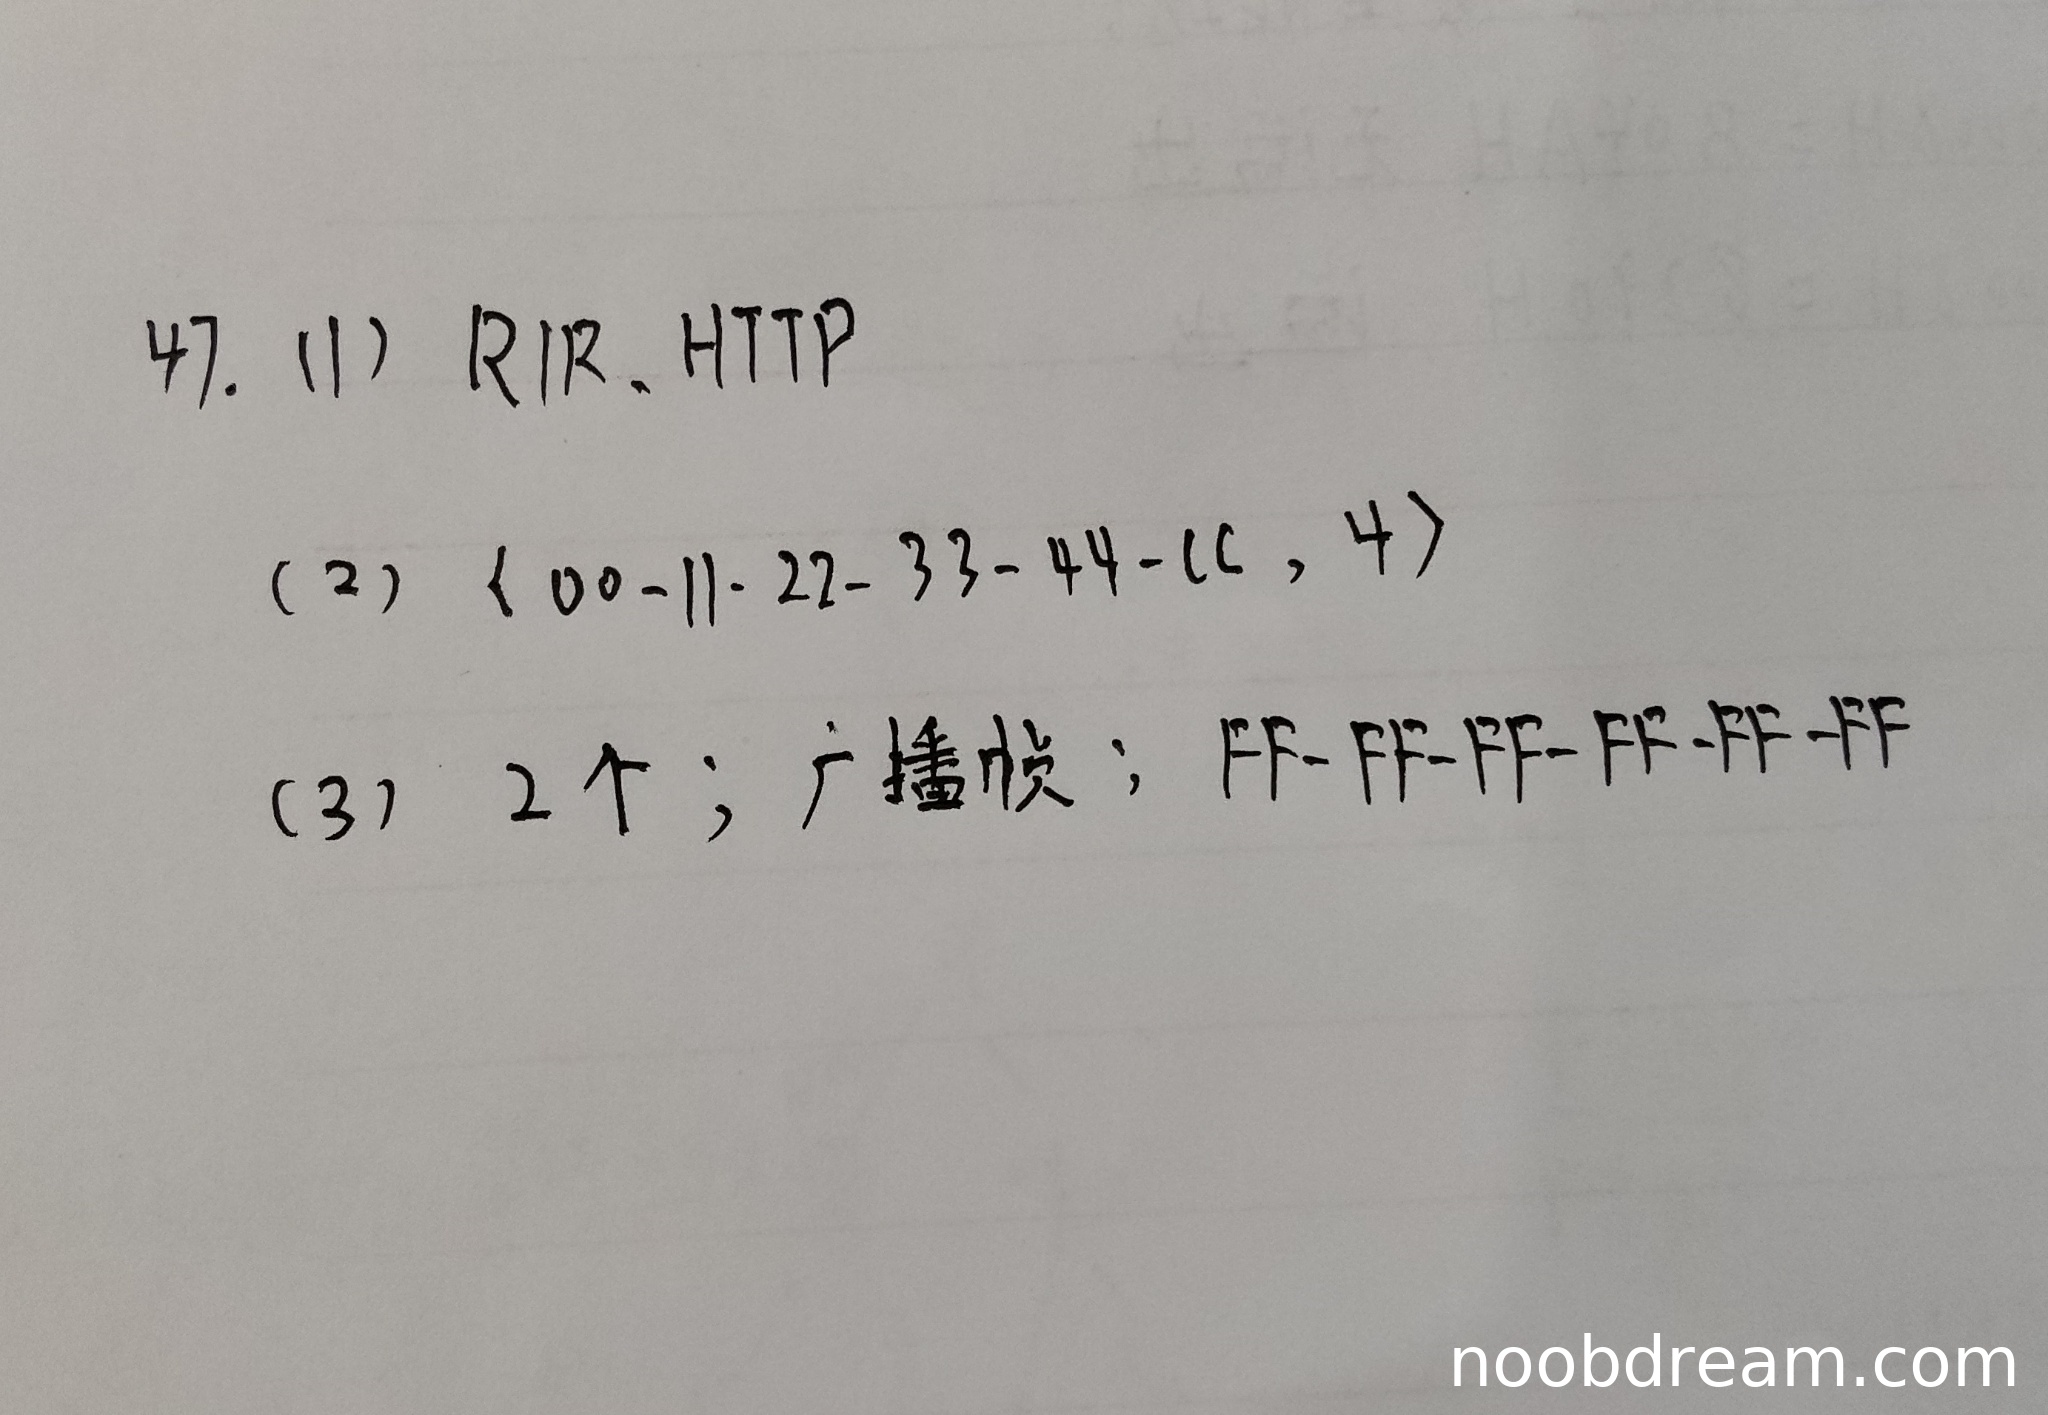 47. (1) RIR、HTTP
(2) 〈00-11-22-33-44-CC, 4〉
(3) 2个；广播帧；FF-FF-FF-FF-FF-FF
noobdream.com